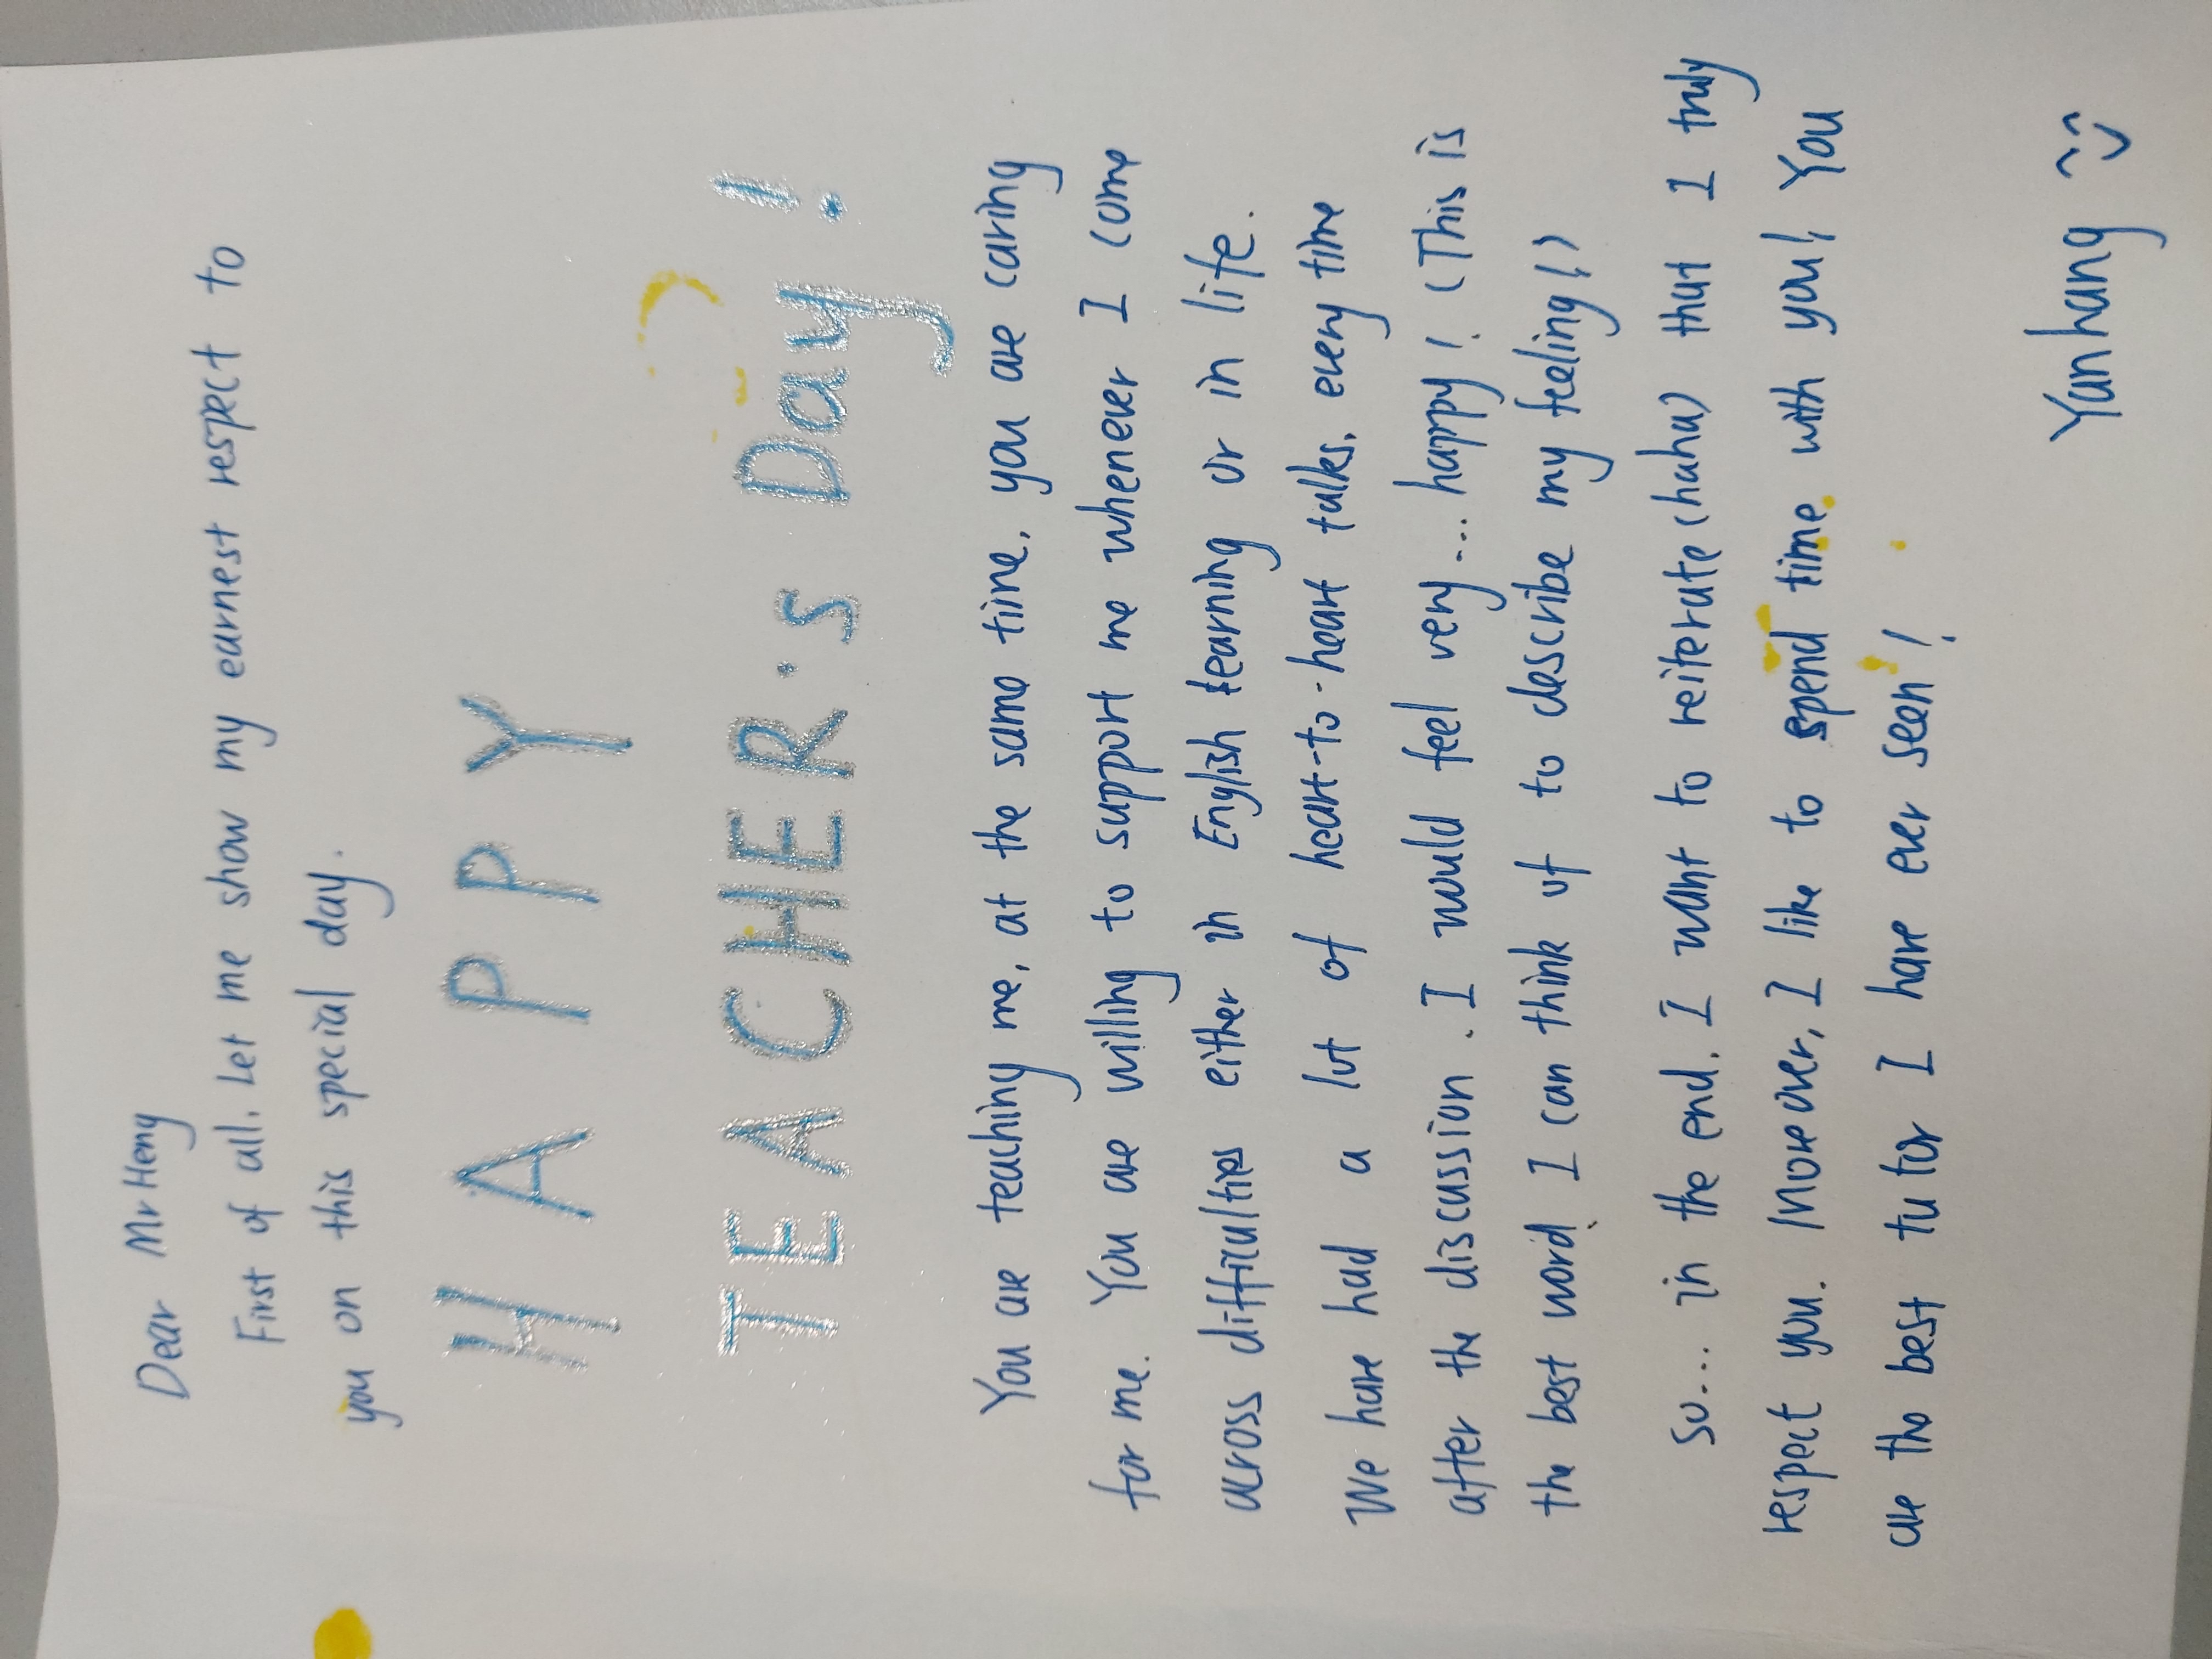 Dear Mr Heng
First of all. Let me show my earnest respect to
you on this special day.
HAPPY
TEACHER's Day!
You are teaching me, at the same time, you are caring
for me. You are willing to support me whenever I come
across difficulties either in English learning or in life.
We have had a lot of heart-to-heart talks, every time
after the discussion. I would feel very... happy! (This is
the best word I can think of to describe my feeling!)
So... in the end. I want to reiterate (haha) that I truly
respect you. Moreover, I like to spend time with you! You
are the best tutor I have ever seen!
Yanhang